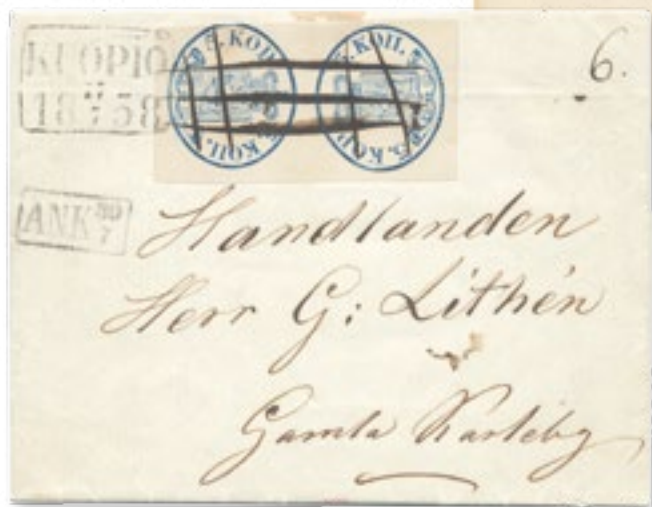 KUOPIO
18 58
5. KOP.
5. КОП.
5. КОП.
5. KOP.
6.
ANK 30/7
Handlanden
Herr G: Lithén
Gamla Karleby